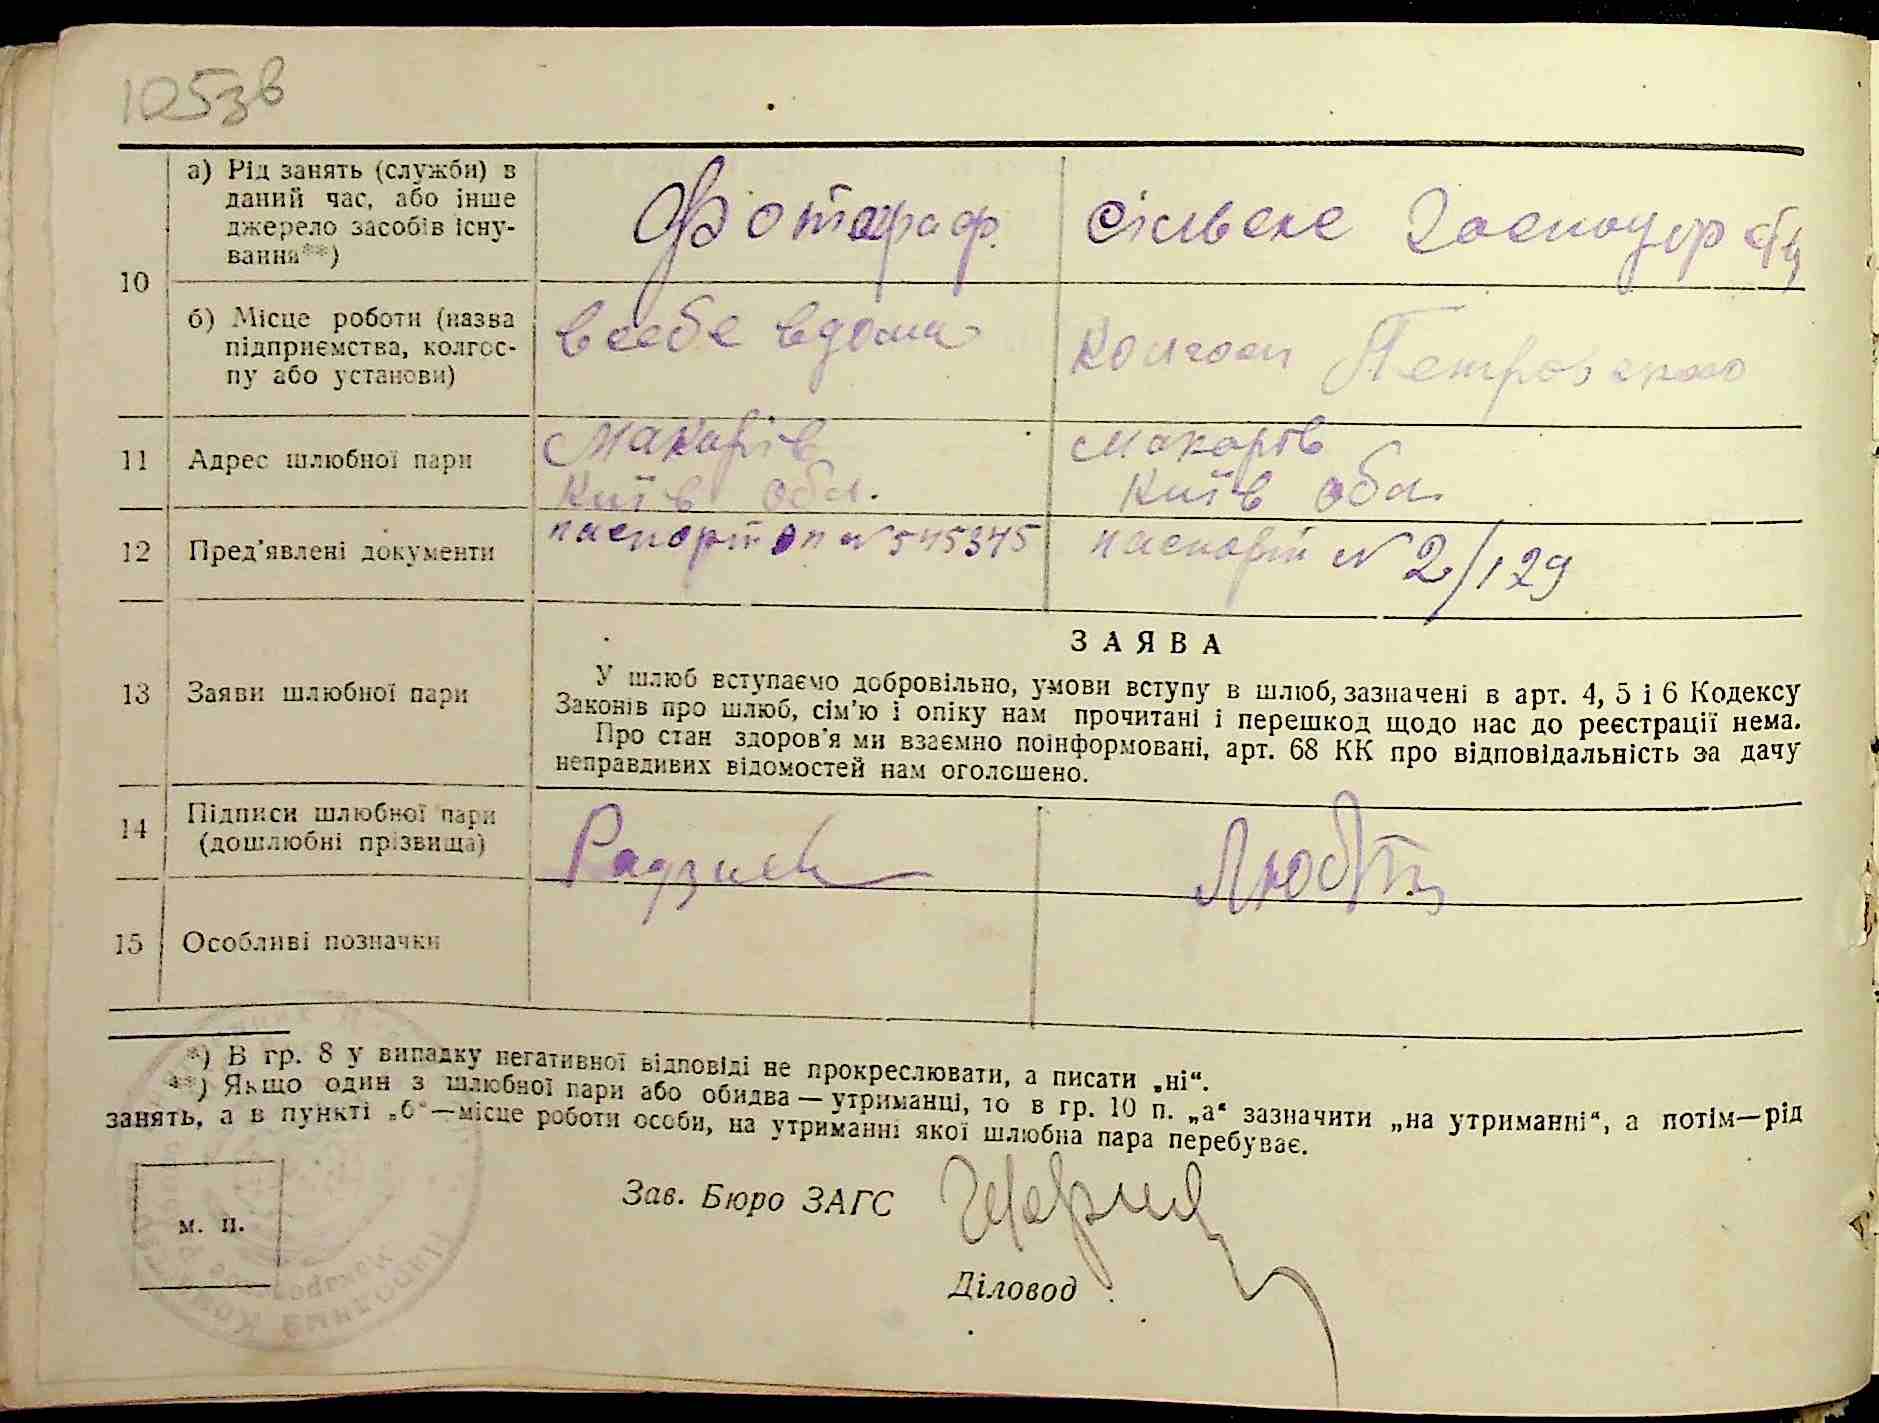 105зв
10
а) Рід занять (служби) в
даний час, або інше
джерело засобів існу-
вання**)
Фотограф
сільське
б) Місце роботи (назва
підприємства, колгос-
пу або установи)
в себе вдома
колгосп Петровського
11 Адрес шлюбної пари
Макарів
Київ обл.
Макарів
Київ обл
12 Пред'явлені документи
паспорт оп № 545345
паспорт № 2/129
13 Заяви шлюбної пари
ЗАЯВА
У шлюб вступаємо добровільно, умови вступу в шлюб, зазначені в арт. 4, 5 і 6 Кодексу
Законів про шлюб, сім'ю і опіку нам прочитані і перешкод щодо нас до реєстрації нема.
Про стан здоров'я ми взаємно поінформовані, арт. 68 КК про відповідальність за дачу
неправдивих відомостей нам оголошено.
14 Підписи шлюбної пари
(дошлюбні прізвища)
15 Особливі позначки
*) В гр. 8 у випадку негативної відповіді не прокреслювати, а писати „ні“.
**) Якщо один з шлюбної пари або обидва — утриманці, то в гр. 10 п. „а“ зазначити „на утриманні“, а потім—рід
занять, а в пункті „б“—місце роботи особи, на утриманні якої шлюбна пара перебуває.
м. п.
Зав. Бюро ЗАГС
Діловод